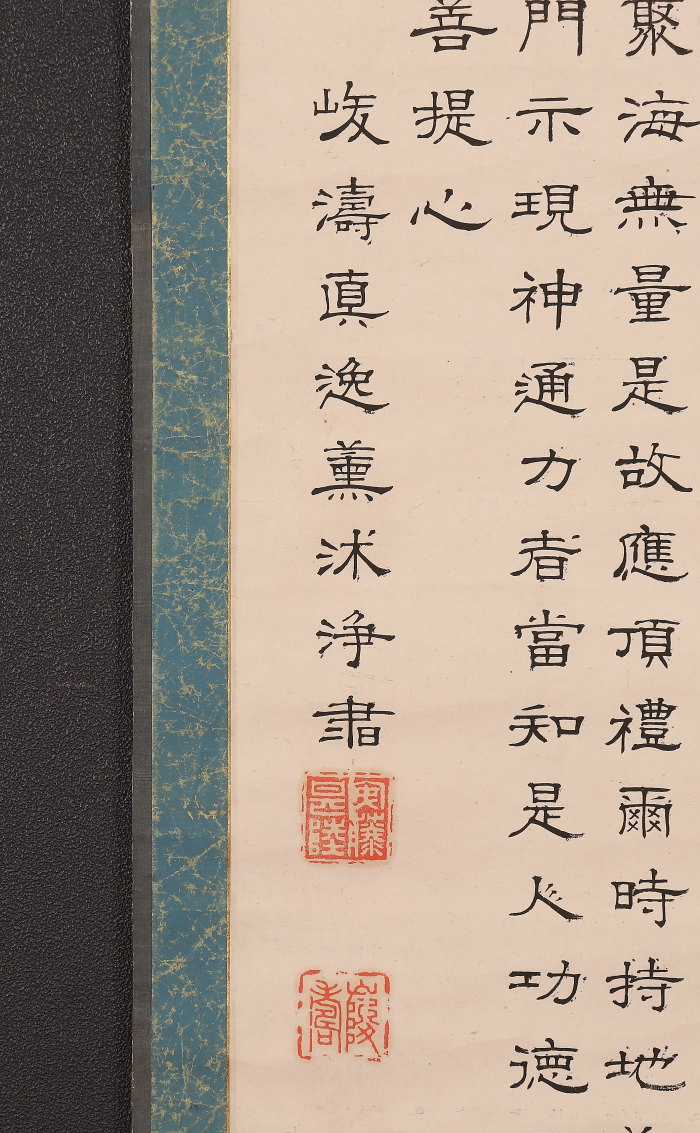 聚海無量是故應頂禮爾時持地
門示現神通力者當知是人功德
菩提心
濤真逸薰沐浄書
安藤